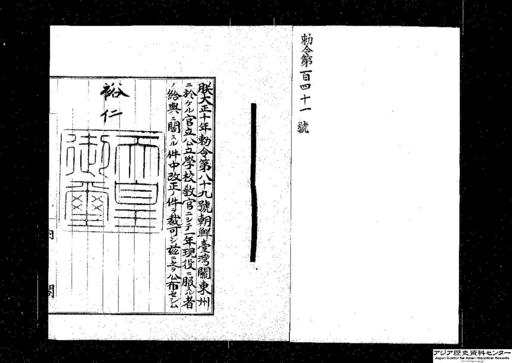 勅令第百四十一號
朕大正十年勅令第八十九號朝鮮臺灣關東州
ニ於ケル官立公立學校教官ニシテ一年現役ニ服スル者
ノ給與ニ關スル件中改正ノ件ヲ裁可シ茲ニ之ヲ公布セシム
裕仁
天皇御璽
内閣
アジア歴史資料センター
Japan Center for Asian Historical Records